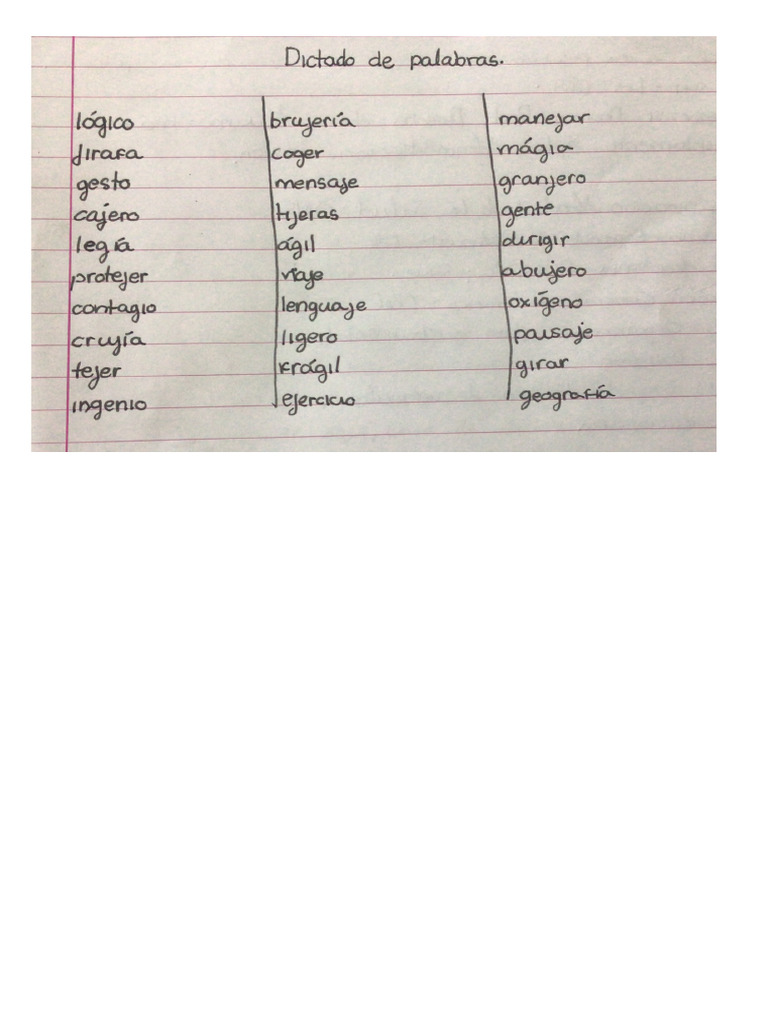 Dictado de palabras.
lógico
jirafa
gesto
cajero
legía
protejer
contagio
crujía
tejer
ingenio
brujería
coger
mensaje
tijeras
ágil
viaje
lenguaje
ligero
frágil
ejercicio
manejar
mágia
granjero
gente
dirigir
abujero
oxígeno
paisaje
girar
geografía